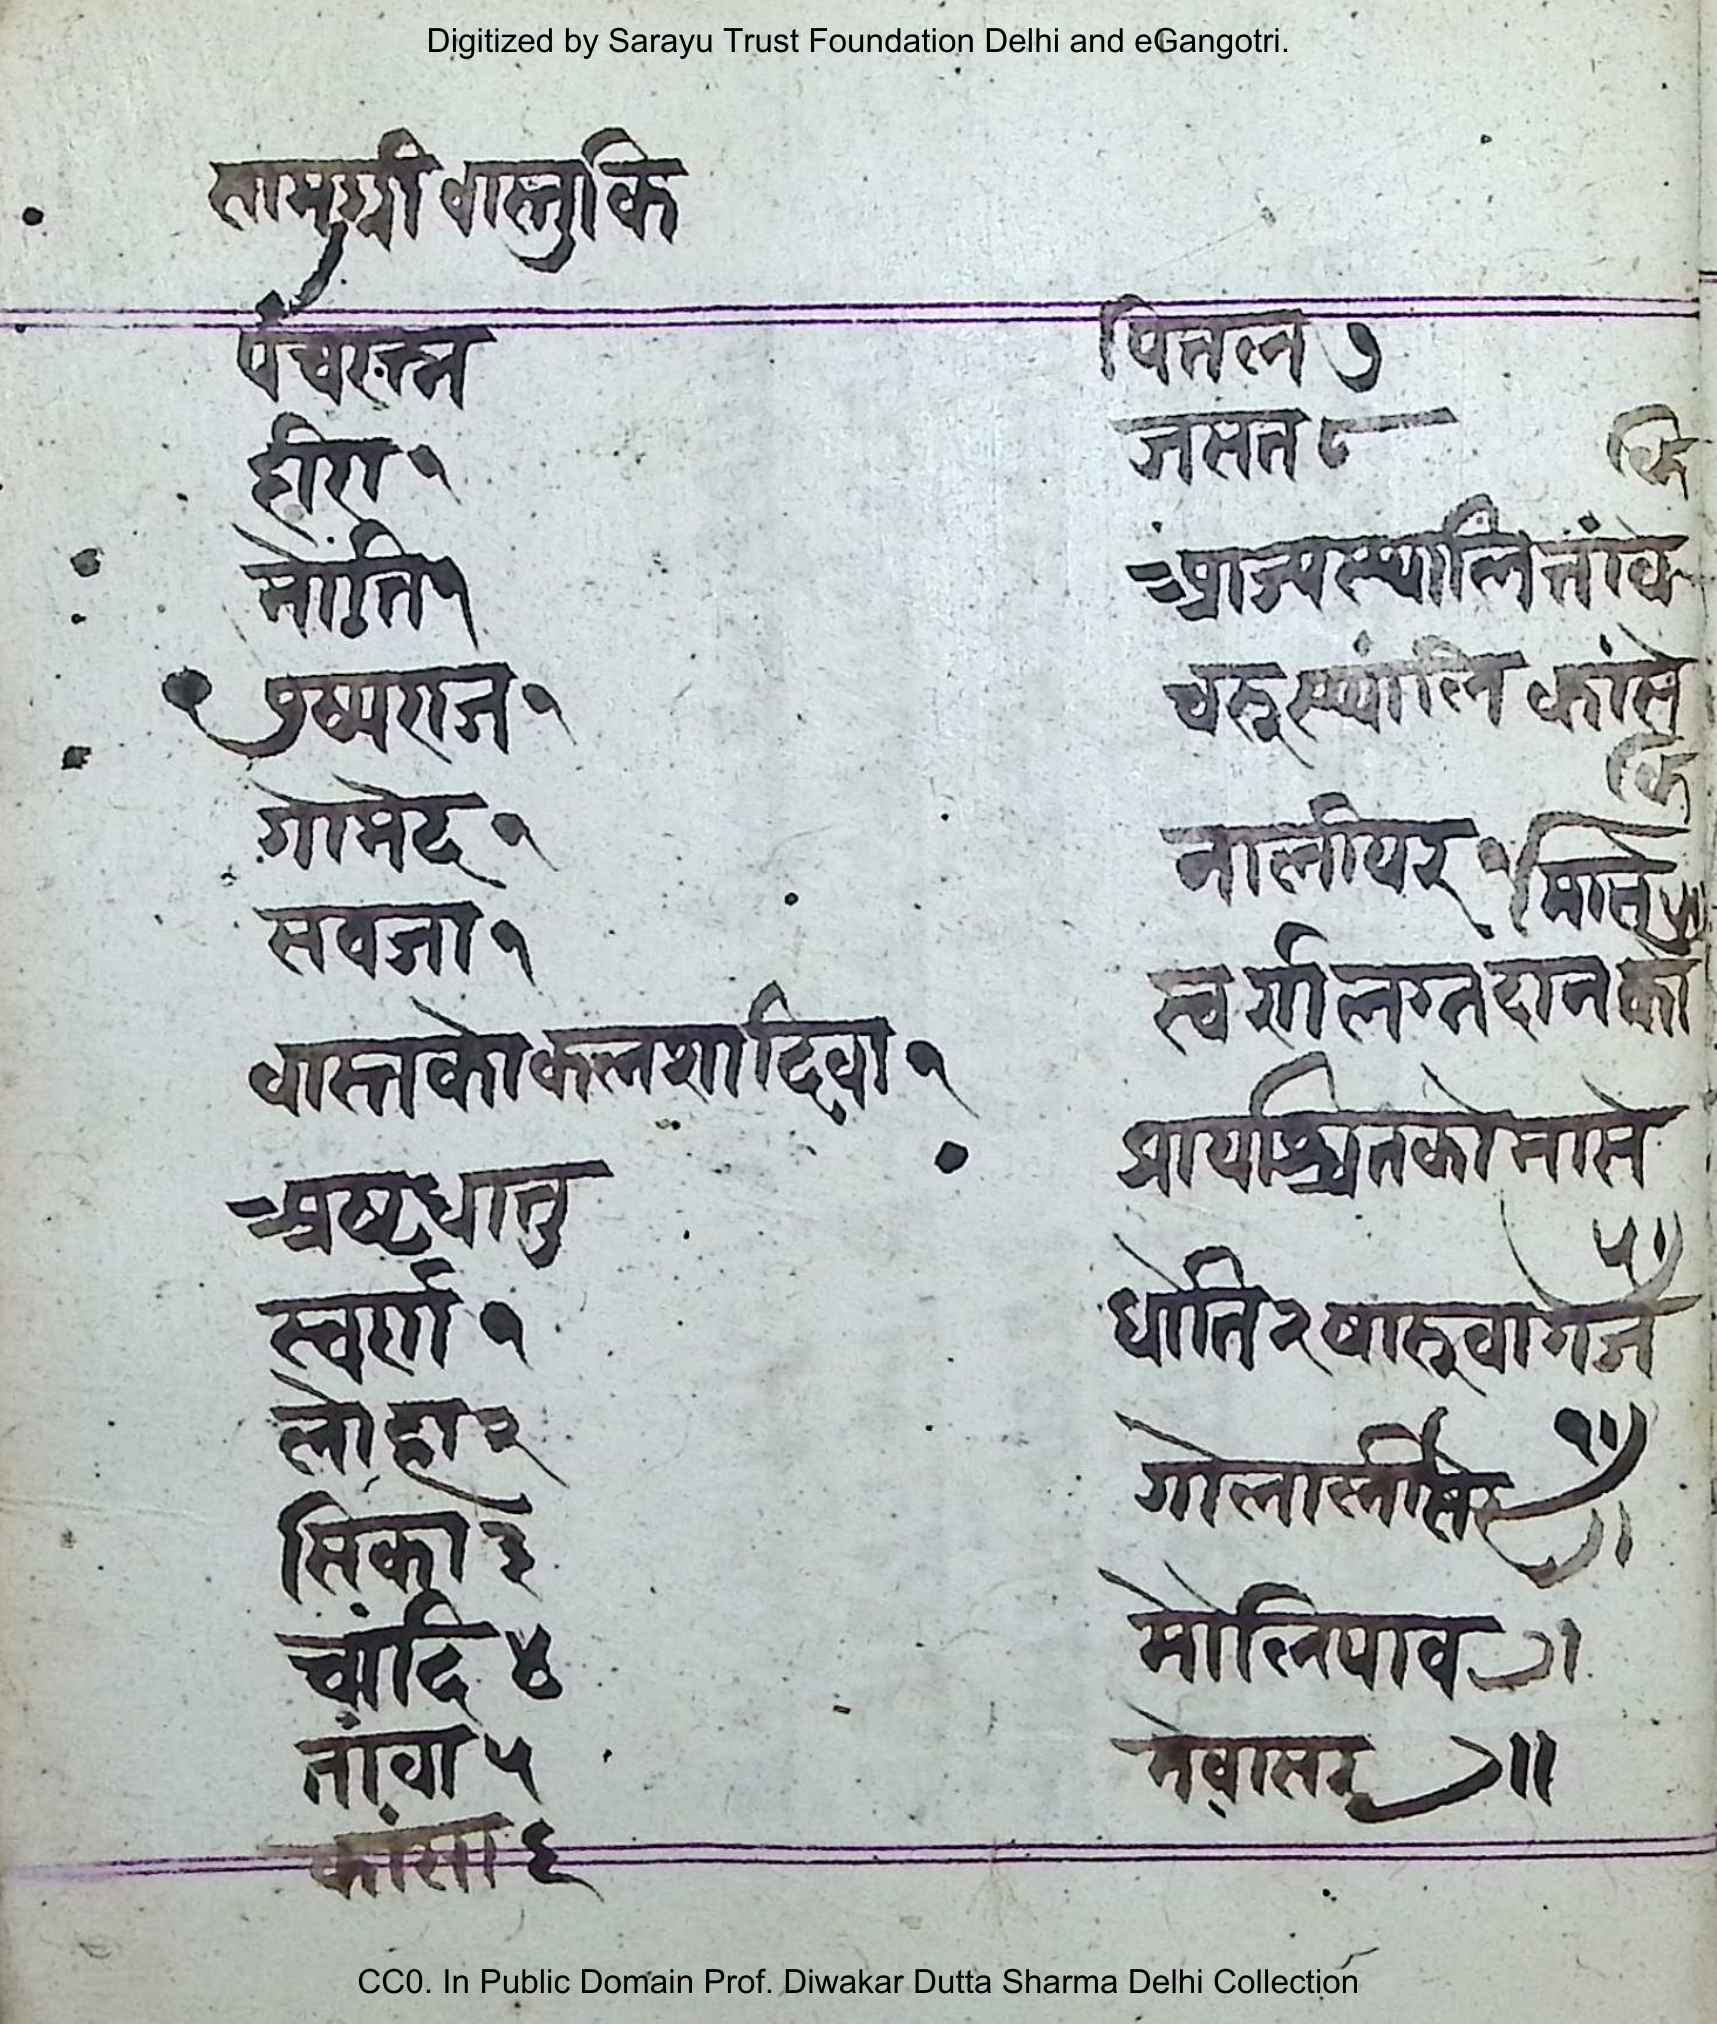 Digitized by Sarayu Trust Foundation Delhi and eGangotri.
सामुग्री वास्तुकि
पंचरत्न
हीरा १
मोति १
पुष्पराज १
गोमेद १
सवजा १
वास्तको कलशादिवा १
अष्टधातु
स्वर्ण १
लोहा २
सिका ३
चांदि ४
तांवा ५
कांसा ६
पितल ७
जसत ८
आज्यस्थालि तांवे
कि
चरुस्थालि कांसे
कि
नालीयर १
स्वर्ण लग्नदानको
मासे ५॥
प्रायश्चितको मासे
५।
धोति २ षारुवा गज
१॥
गोला स्नीसेर ऽ।
मोलि पाव ऽ।
मेवा सेर ऽ॥
CC0. In Public Domain Prof. Diwakar Dutta Sharma Delhi Collection